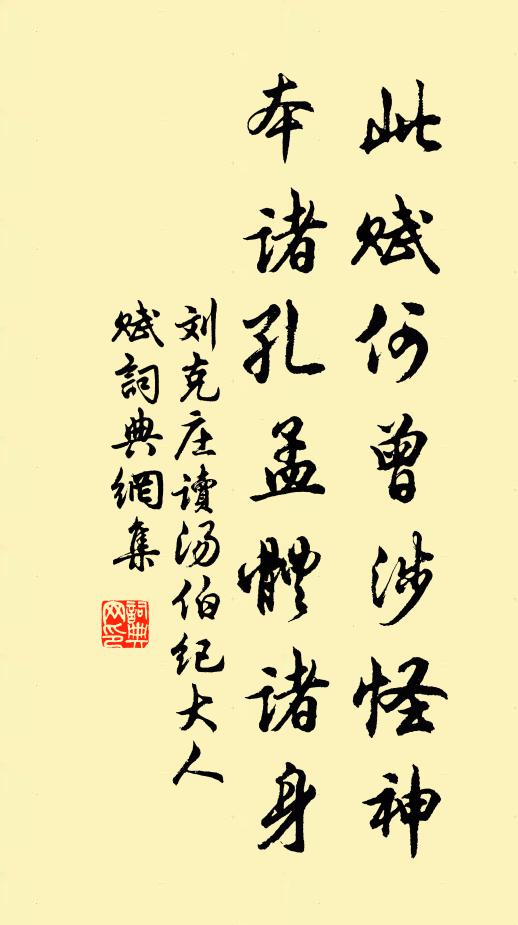 此赋何曾涉怪神
本诸孔孟体诸身
刘克庄读汤伯纪大人
赋词典網集
詞典
网印